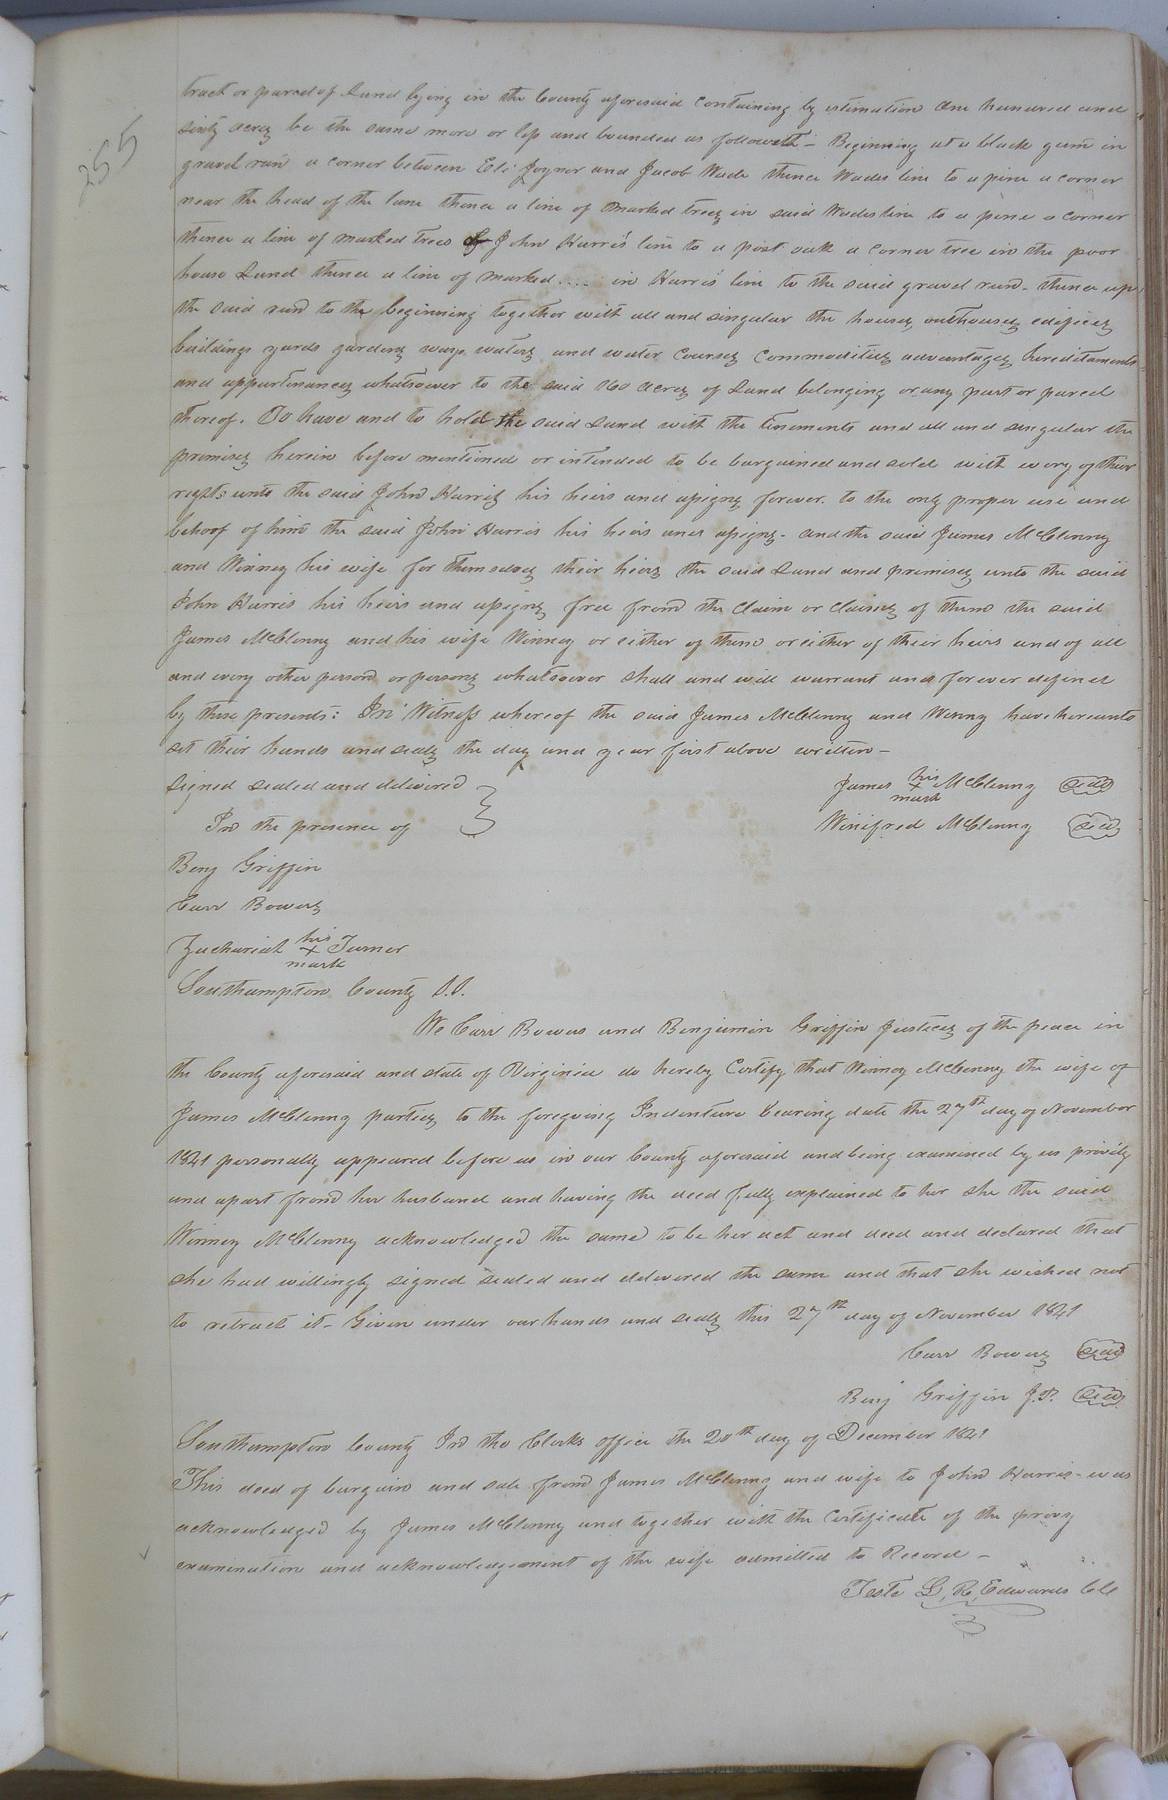 255
tract or parcel of Land lying in the County aforesaid containing by estimation One hundred and
sixty acres be the same more or less and bounded as followeth - Beginning at a black gum in
gravel run a corner between Eli Joyner and Jacob Wade thence Wades line to a pine a corner
near the head of the lane thence a line of marked trees in said Wades line to a pine a corner
thence a line of marked trees John Harris's line to a post oak a corner tree in the poor
house Land thence a line of marked .... in Harris' line to the said gravel run - thence up
the said run to the beginning together with all and singular the houses outhouses edifices
buildings yards gardens ways waters and water courses commodities advantages hereditaments
and appurtenances whatsoever to the said 160 acres of Land belonging or any part or parcel
thereof. To have and to hold the said Land with the tenements and all and singular the
premises herein before mentioned or intended to be bargained and sold with every of their
rights unto the said John Harris his heirs and assigns forever. to the only proper use and
behoof of him the said John Harris his heirs and assigns - and the said James McClenny
and Winney his wife for themselves their heirs the said Land and premises unto the said
John Harris his heirs and assigns free from the claim or claims of them the said
James McClenny and his wife Winney or either of them or either of their heirs and of all
and every other person or persons whatsoever shall and will warrant and forever defend
by these presents: In Witness whereof the said James McClenny and Winny have hereunto
set their hands and seals the day and year first above written -
signed sealed and delivered } James his + mark McClenny seal
In the presence of Winifred McClenny seal
Benj Griffin
Carr Bowers
Zachariah his + mark Turner
Southampton County S.S.
We Carr Bowers and Benjamin Griffin Justices of the peace in
the County aforesaid and state of Virginia do hereby Certify that Winney McClenny the wife of
James McClenny parties to the foregoing Indenture bearing date the 27th day of November
1821 personally appeared before us in our County aforesaid and being examined by us privily
and apart from her husband and having the deed fully explained to her she the said
Winney McClenny acknowledged the same to be her act and deed and declared that
she had willingly signed sealed and delivered the same and that she wished not
to retract it - Given under our hands and seals this 27th day of November 1821
Carr Bowers seal
Benj Griffin J.P. seal
Southampton County In the Clerks office the 20th day of December 1821
This deed of bargain and sale from James McClenny and wife to John Harris - was
acknowledged by James McClenny and together with the Certificate of the privy
examination and acknowledgement of the wife admitted to Record -
Teste L, R, Edwards Clk